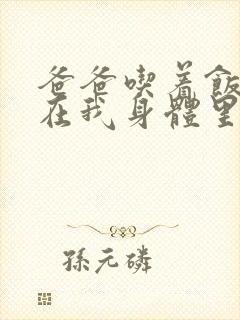 爸爸喫着飯
在我身體里
孫元磷